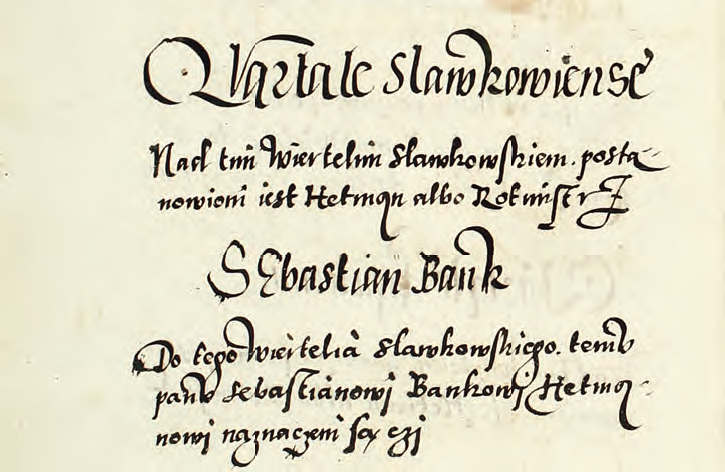 QVartale Slawkowiense
Nad tim Wiertelim Slawkowskiem. posta-
nowioni iest Hetmąn albo Rotmistrz
SEbastian Bank
Do tego Wiertelia Slawkowskiego. temv
panv Sebastianowj Bankowj Hetmą-
nowj naznaczeni są czj